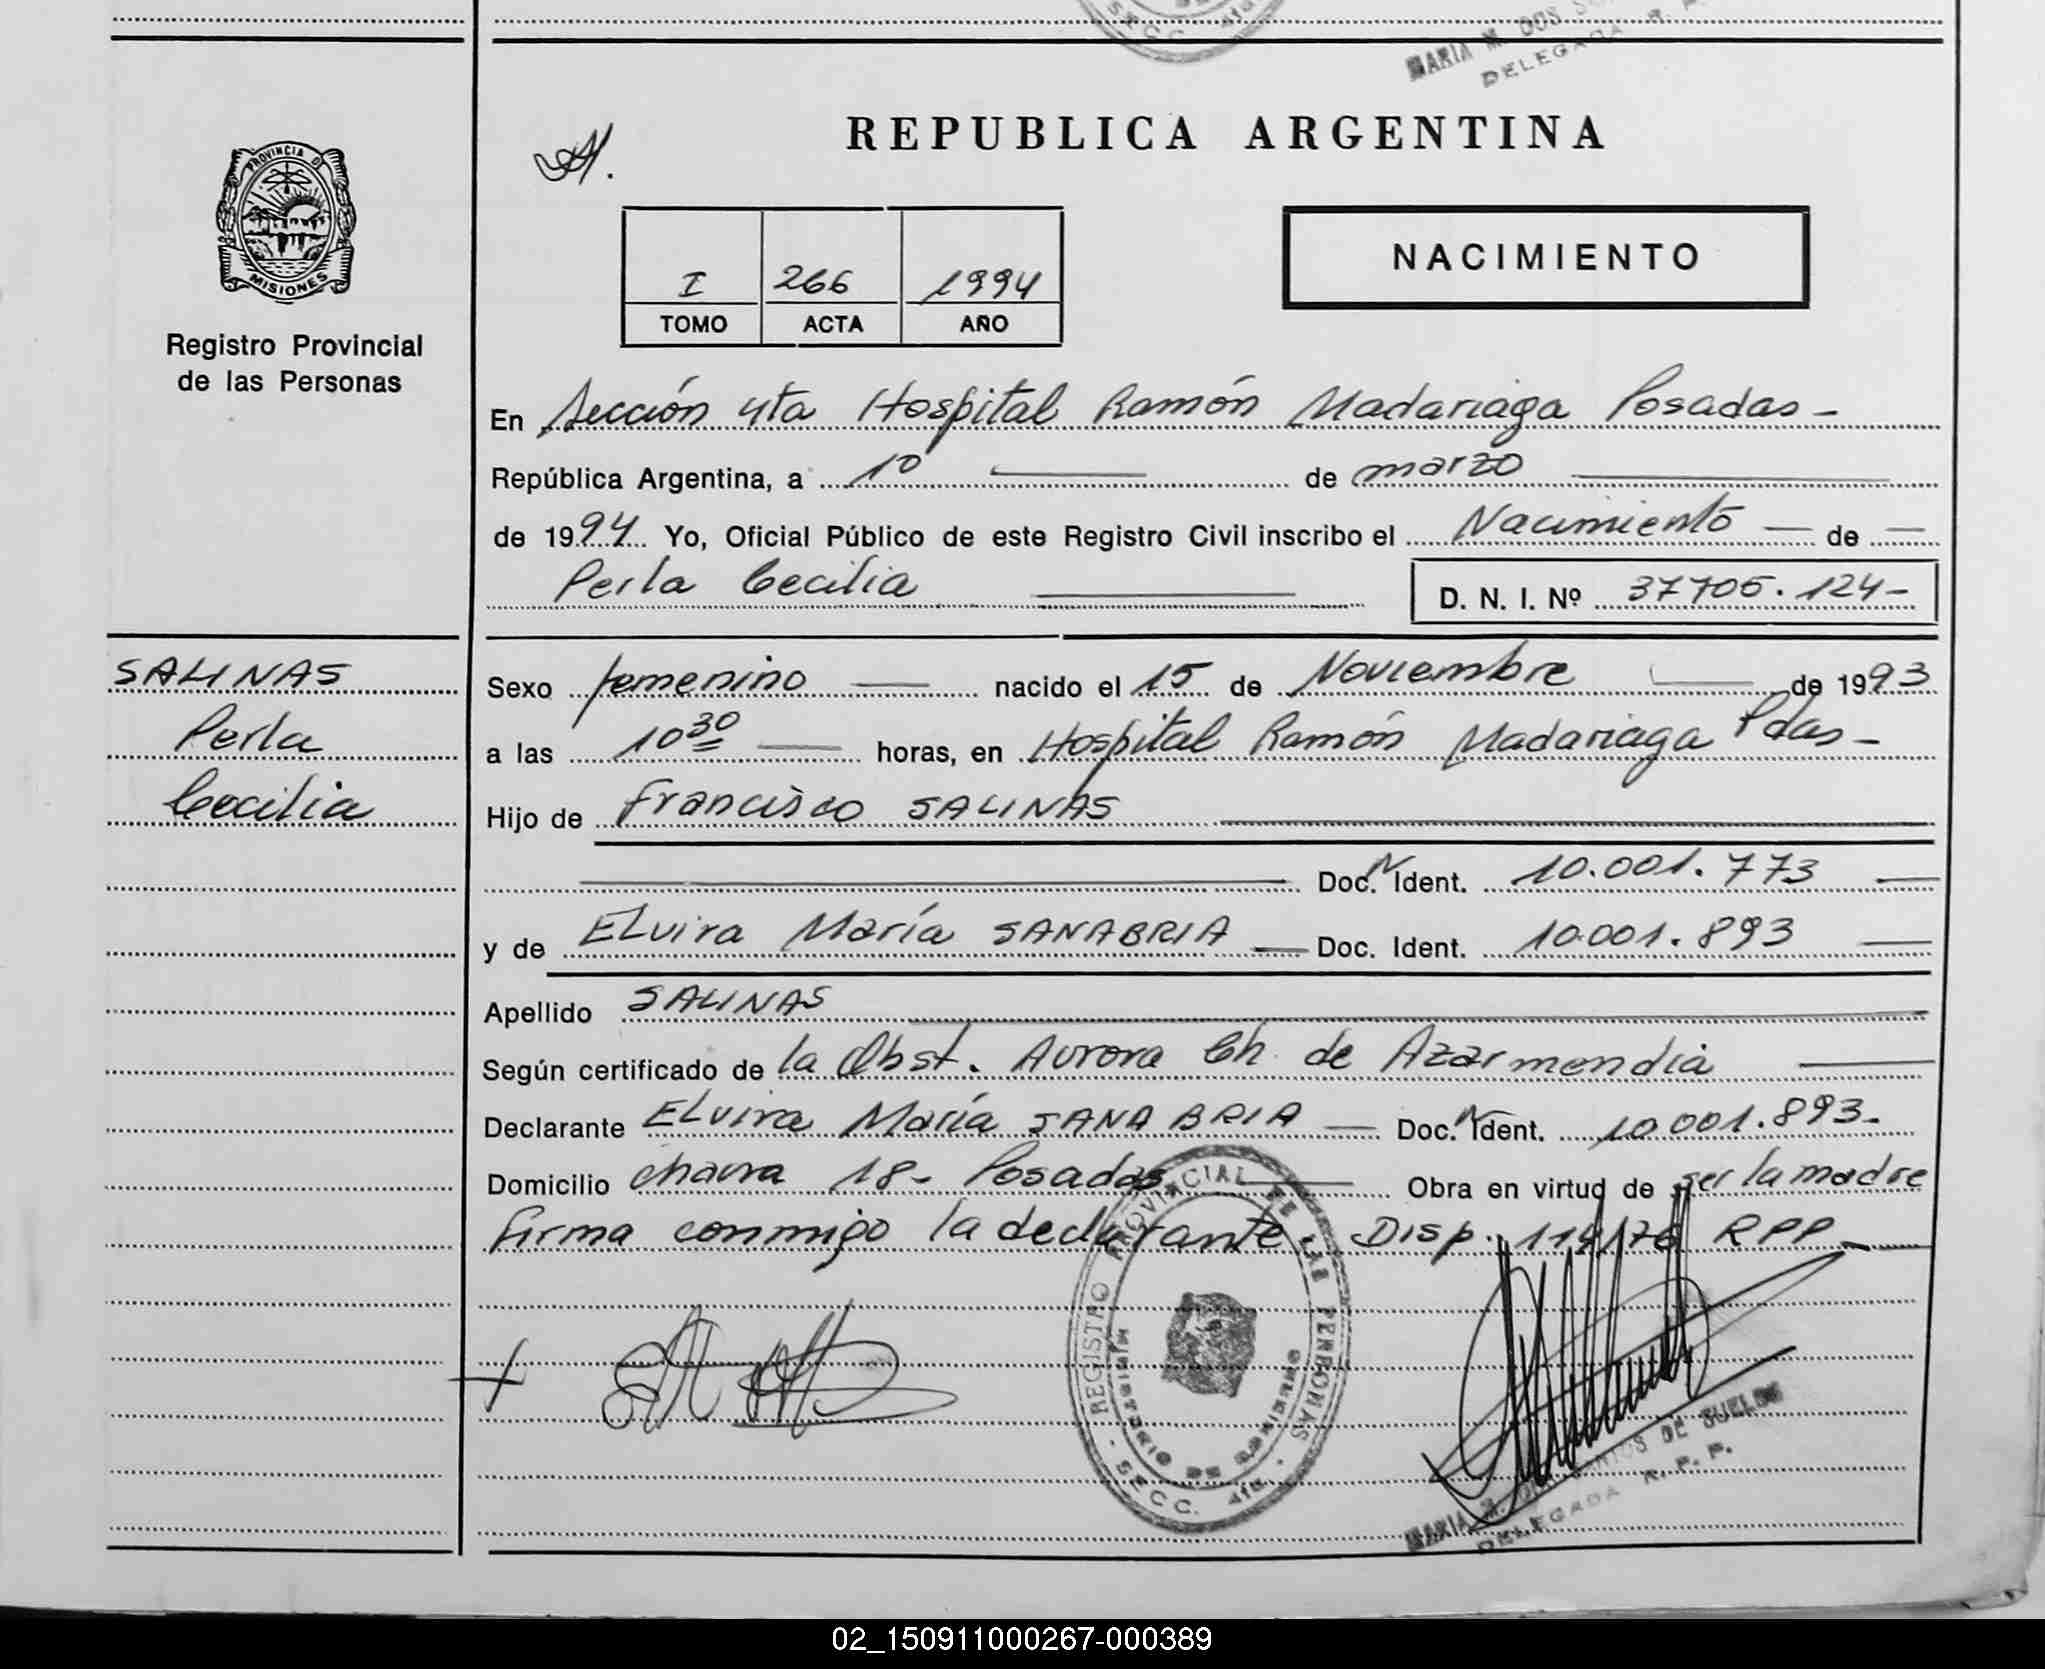 SECC. 4ta
MARIA M. DOS
DELEGADA R.
PROVINCIA D
MISIONES
Registro Provincial
de las Personas
REPUBLICA ARGENTINA
I 266 1994
TOMO ACTA AÑO
NACIMIENTO
En Sección 4ta Hospital Ramón Madariaga Posadas -
República Argentina, a 1º de marzo
de 1994 Yo, Oficial Público de este Registro Civil inscribo el Nacimiento de
Perla Cecilia D. N. I. Nº 37705.124-
SALINAS
Perla
Cecilia
Sexo femenino nacido el 15 de Noviembre de 1993
a las 10 30 horas, en Hospital Ramón Madariaga Pdas -
Hijo de Francisco SALINAS
Doc. N Ident. 10.001.773
y de ELvira María SANABRIA Doc. Ident. 10.001.893
Apellido SALINAS
Según certificado de la Obst. Aurora Ch. de Azarmendia
Declarante ELvira María SANABRIA Doc. N Ident. 10.001.893-
Domicilio chacra 18- Posadas Obra en virtud de ser la madre
firma conmigo la declarante. Disp. 114/76 RPP
REGISTRO PROVINCIAL DE LAS PERSONAS
MINISTERIO DE GOBIERNO
SECC. 4ta
MARIA M. DOS SANTOS DE SUELDO
DELEGADA R. P. P.
02_150911000267-000389